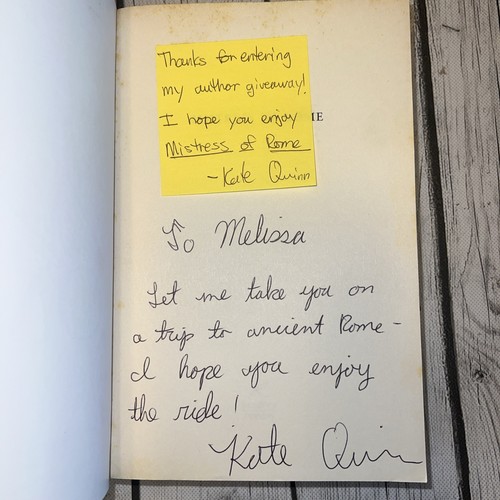 Thanks for entering
my author giveaway!
I hope you enjoy
Mistress of Rome
-Kate Quinn
ME
To Melissa
Let me take you on
a trip to ancient Rome -
I hope you enjoy
the ride!
Kate Quinn